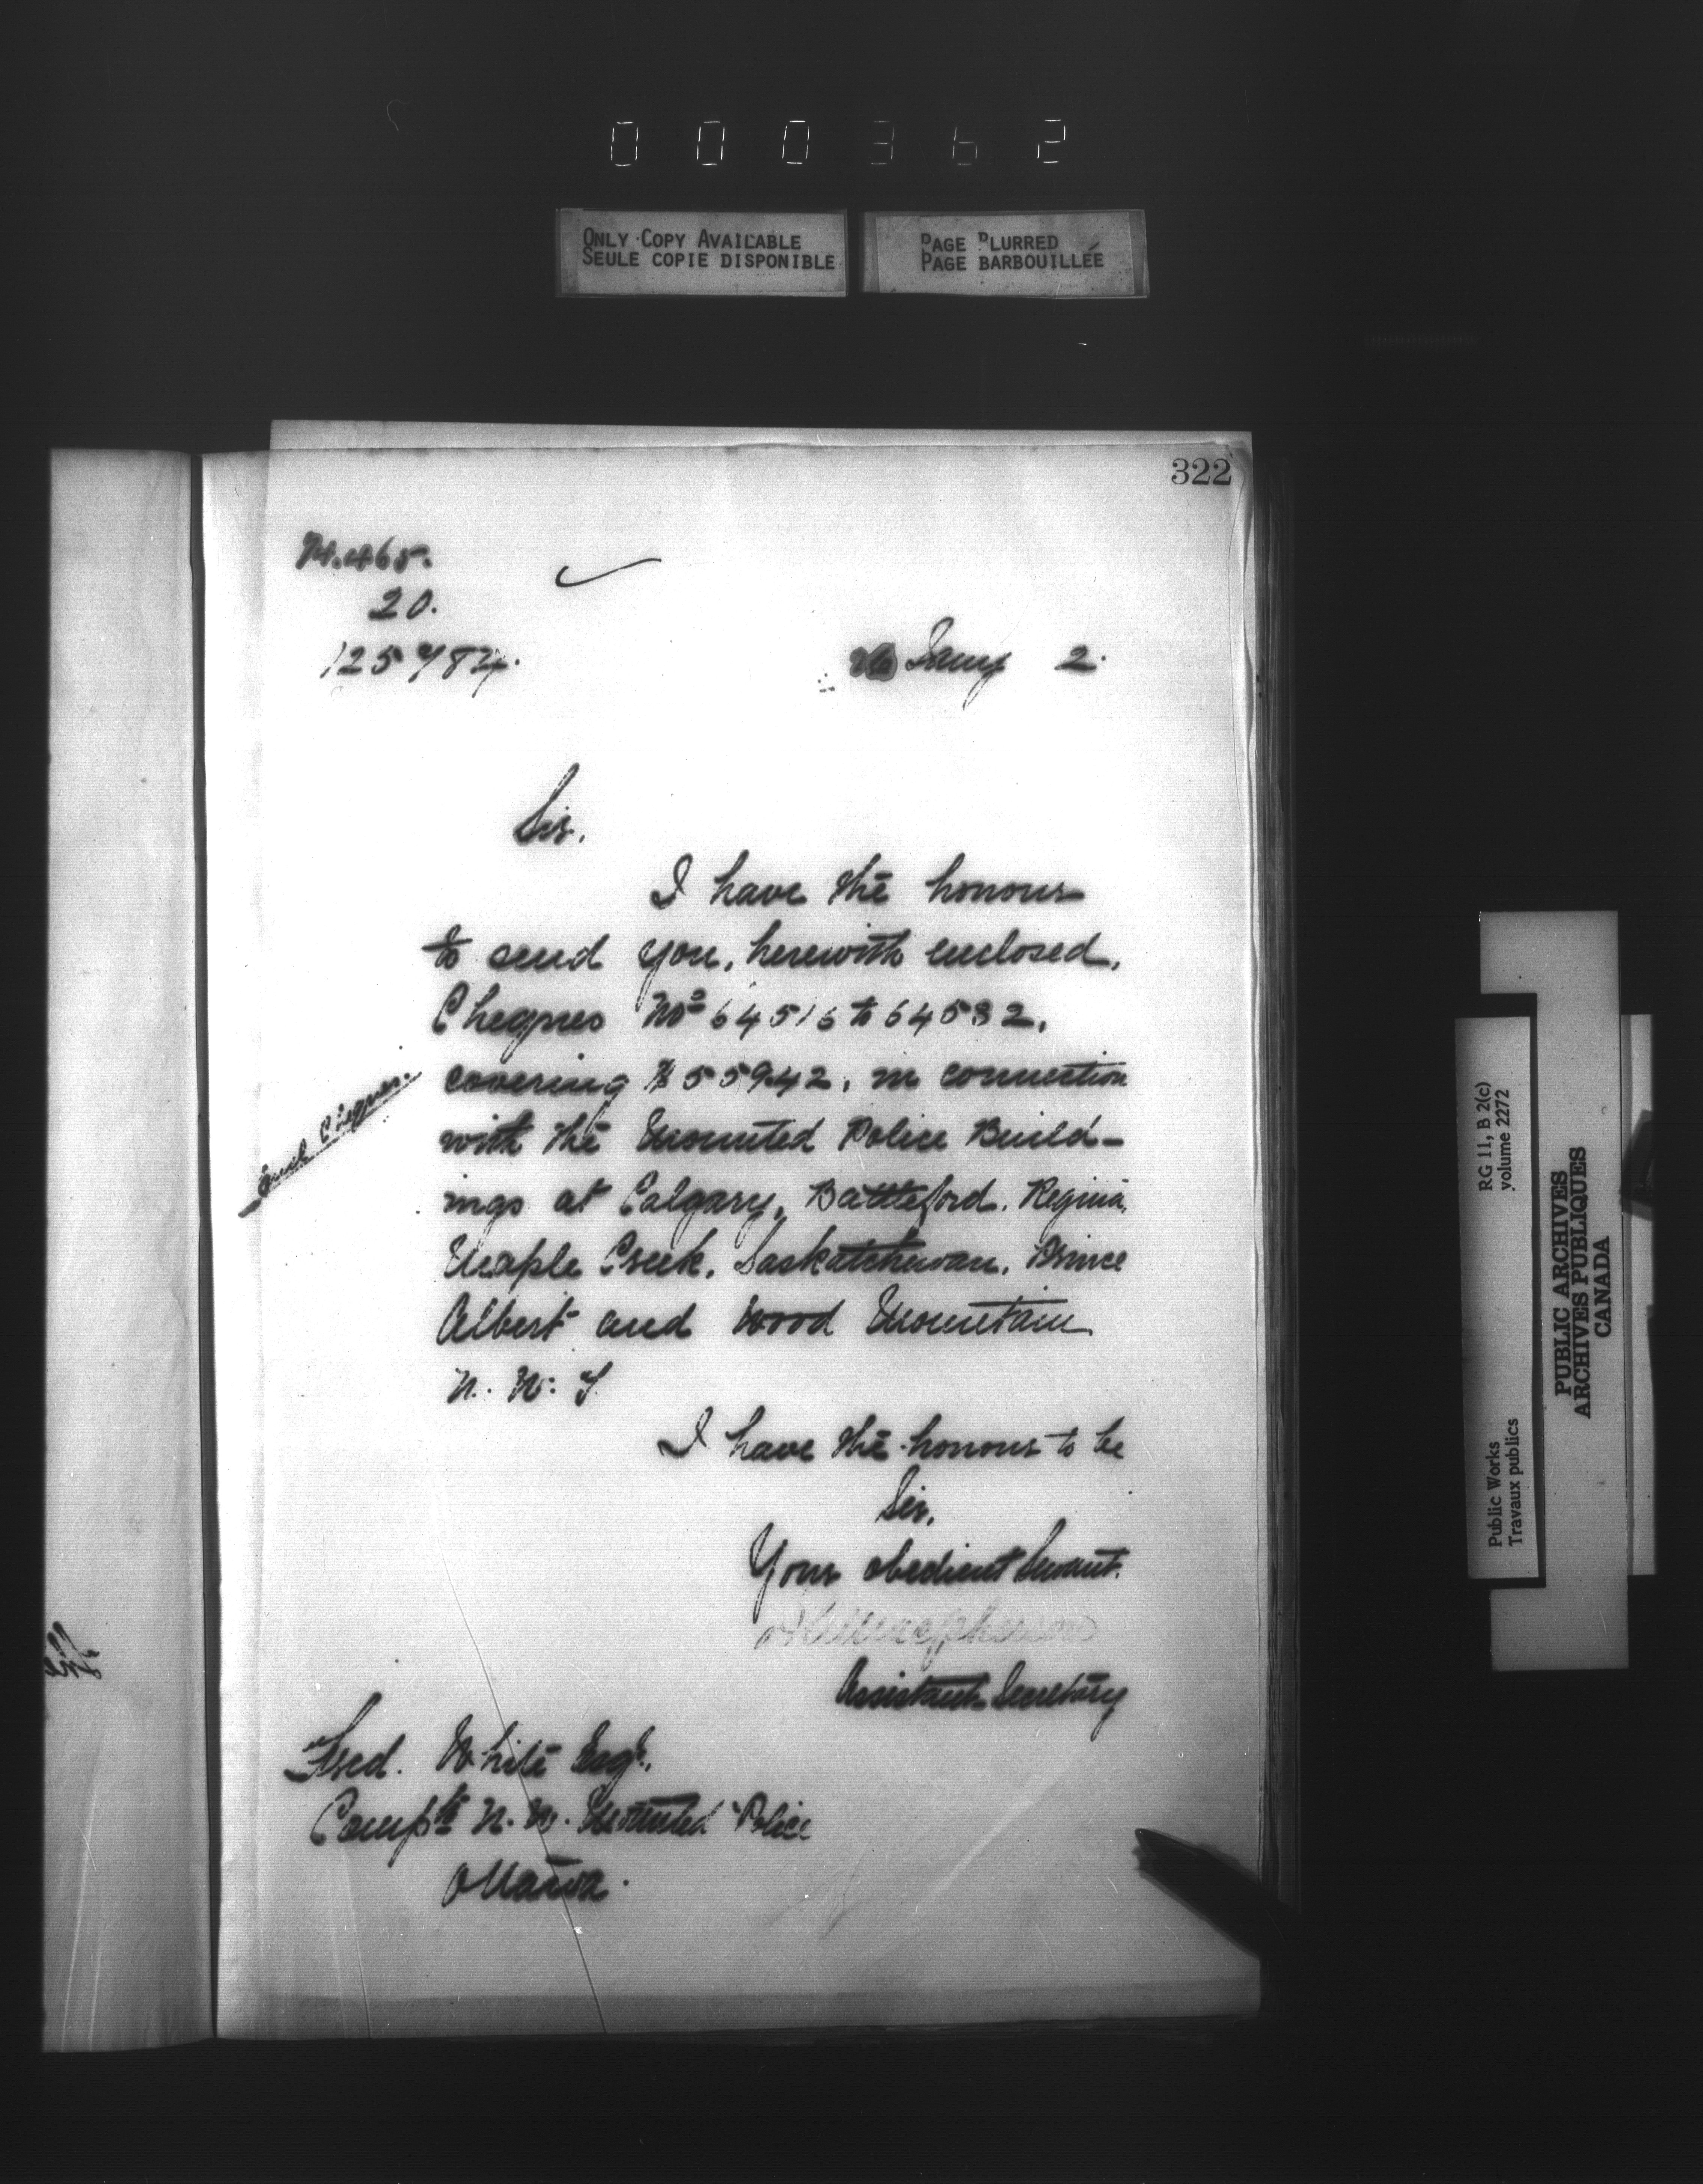 000362
ONLY COPY AVAILABLE
SEULE COPIE DISPONIBLE
PAGE BLURRED
PAGE BARBOUILLÉE
322
20.
125784.
Jany 2.
Sir,
I have the honour
to send you, herewith enclosed,
Cheques Nos 64516 to 64582,
covering $559.42, in connection
with the Mounted Police Build-
ings at Calgary, Battleford, Regina,
Maple Creek, Saskatchewan, Prince
Albert and Wood Mountain
N. W. T
Cheques.
I have the honour to be
Sir,
Your obedient Servant.
Assistant Secretary
Fred. White Esqr.,
Compt N. W. Mounted Police
Ottawa.
RG 11, B 2(c)
volume 2272
Public Works
Travaux publics
PUBLIC ARCHIVES
ARCHIVES PUBLIQUES
CANADA